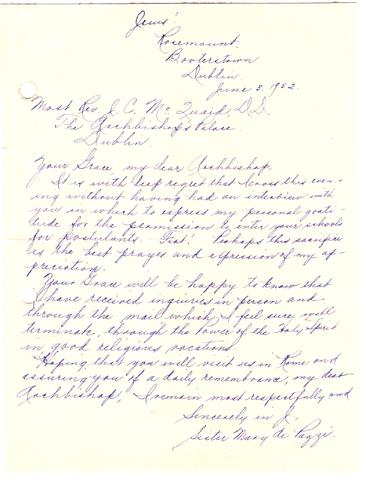 Jesus!
Rosemount.
Booterstown
Dublin
June 3, 1952.
Most Rev. J. C. Mc Quaid, D.D.
The Archbishop's Palace.
Dublin.
Your Grace my dear Archbishop,
It is with deep regret that I cross this even-
ing without having had an interview with
you in which to express my personal grati-
tude for the permission to enter your schools
for Postulants. Fiat! Perhaps this sacrifice
is the best prayer and expression of my ap-
preciation.
Your Grace will be happy to know that
I have received inquiries in person and
through the mail which, I feel sure, will
terminate, through the Power of the Holy Spirit
in good religious vocations.
Hoping that you will visit us in Rome and
assuring you of a daily remembrance, my dear
Archbishop, I remain most respectfully and
Sincerely in J.
Sister Mary de Pazzi.